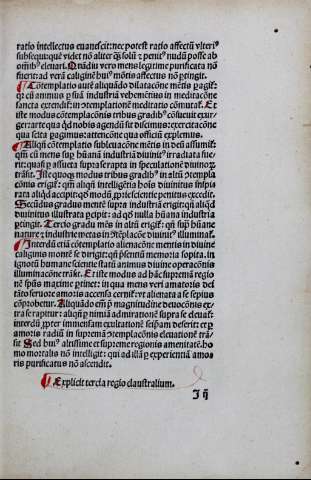 ratio intellectus euanescit: nec potest ratio affectū vlteri⁹
subsequi: quē videt nō aliter q̄ solū ⁊ penit⁹ nudū posse ab
om̄ib⁹ eleuari. Qn̄diu vero mens legitime purificata nō
fuerit: ad verā caliginē hui⁹ mōtis affectus nō ꝑtingit.
¶ Cōtemplatio autē aliquādo dilatacōne mētis ꝑagit᷑:
qn̄ cū animus ꝑ suā industriā vehemētius in meditacōne
sancta extendit᷑: in ↄtemplationē meditatio cōmutat᷑. Et
iste modus cōtemplacōnis tribus gradib⁹ cōsueuit exur-
gere: arte q̄ qd̄ nobis agendū sit discimus: exercitacōne
qua secta ꝑagimus: attencōne qua officiū explemus.
¶ Aliqn̄ cōtemplatio subleuacōne mētis in deū assumit᷑:
qm̄ cū mens suꝑ hūanā industriā diuinit⁹ irradiata fue-
rit: quasi ꝑ assueta supra se rapta in speculationē diuinoꝝ
trāsit. Iste quoqꝫ modus tribus gradib⁹ in altū ↄtempla
cōnis erigit᷑: qm̄ aliqn̄ intelligētia hoīs diuinitus inspi
rata aliqd̄ accipit: qd̄ modū ꝓprie scientie penitus excedit.
Secūdus gradus mentē supra industriā erigit: qn̄ aliqd̄
diuinitus illustrata ꝑcipit: ad qd̄ nulla hūana industria
ꝑtingit. Tercio gradu mēs in altū erigit᷑: qn̄ suꝑ hūane
nature ⁊ industrie metas in ↄtēplacōe diuinit⁹ illuminat᷑.
¶ Interdū eciā cōtemplatio alienacōne mentis in diuine
caliginis monte se dirigit: qn̄ presentiū memoria sopita. in
ignotū humane scientie statū animus diuine operacōnis
illuminacōne trāsit. Et iste modus ad hāc supremā regio
nē sp̄us maxime ꝑtinet: in qua mens veri amatoris del
tāto feruore amoris accensa cernit᷑: vt alienata a se sepius
cōprobetur. Aliquādo em̄ p̄ magnitudine deuocōnis ex-
tra se rapitur: aliqn̄ p̄ nimia admiratione supra se eleuat᷑:
interdū ꝓpter immensam exultationē seip̄am deserit: et ꝑ
amoris radiū in supremā ↄtemplacōnis eleuationē trā-
sit. Sed hui⁹ altissime et supreme regionis amenitatē. ho
mo mortalis nō intelligit: qui ad illā ꝑ experientiā amo
ris purificatus nō ascendit.
¶ Explicit tercia regio claustralium.
I q̄